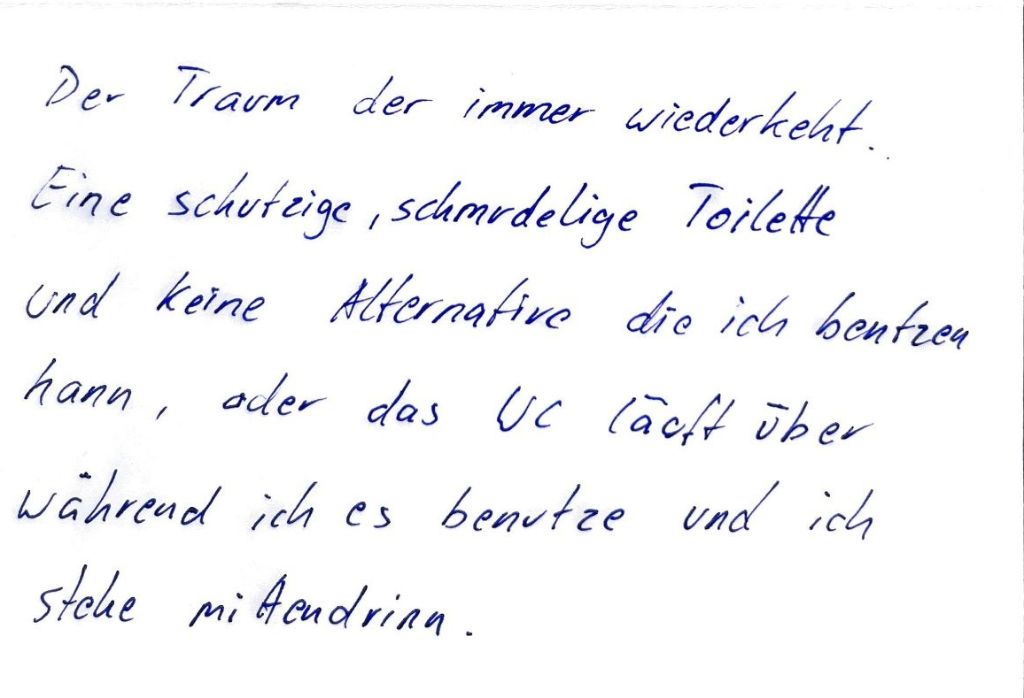 Der Traum der immer wiederkeht.
Eine schutzige, schmudelige Toilette
und keine Alternative die ich bentzen
kann, oder das WC läuft über
während ich es benutze und ich
stehe mittendrinn.